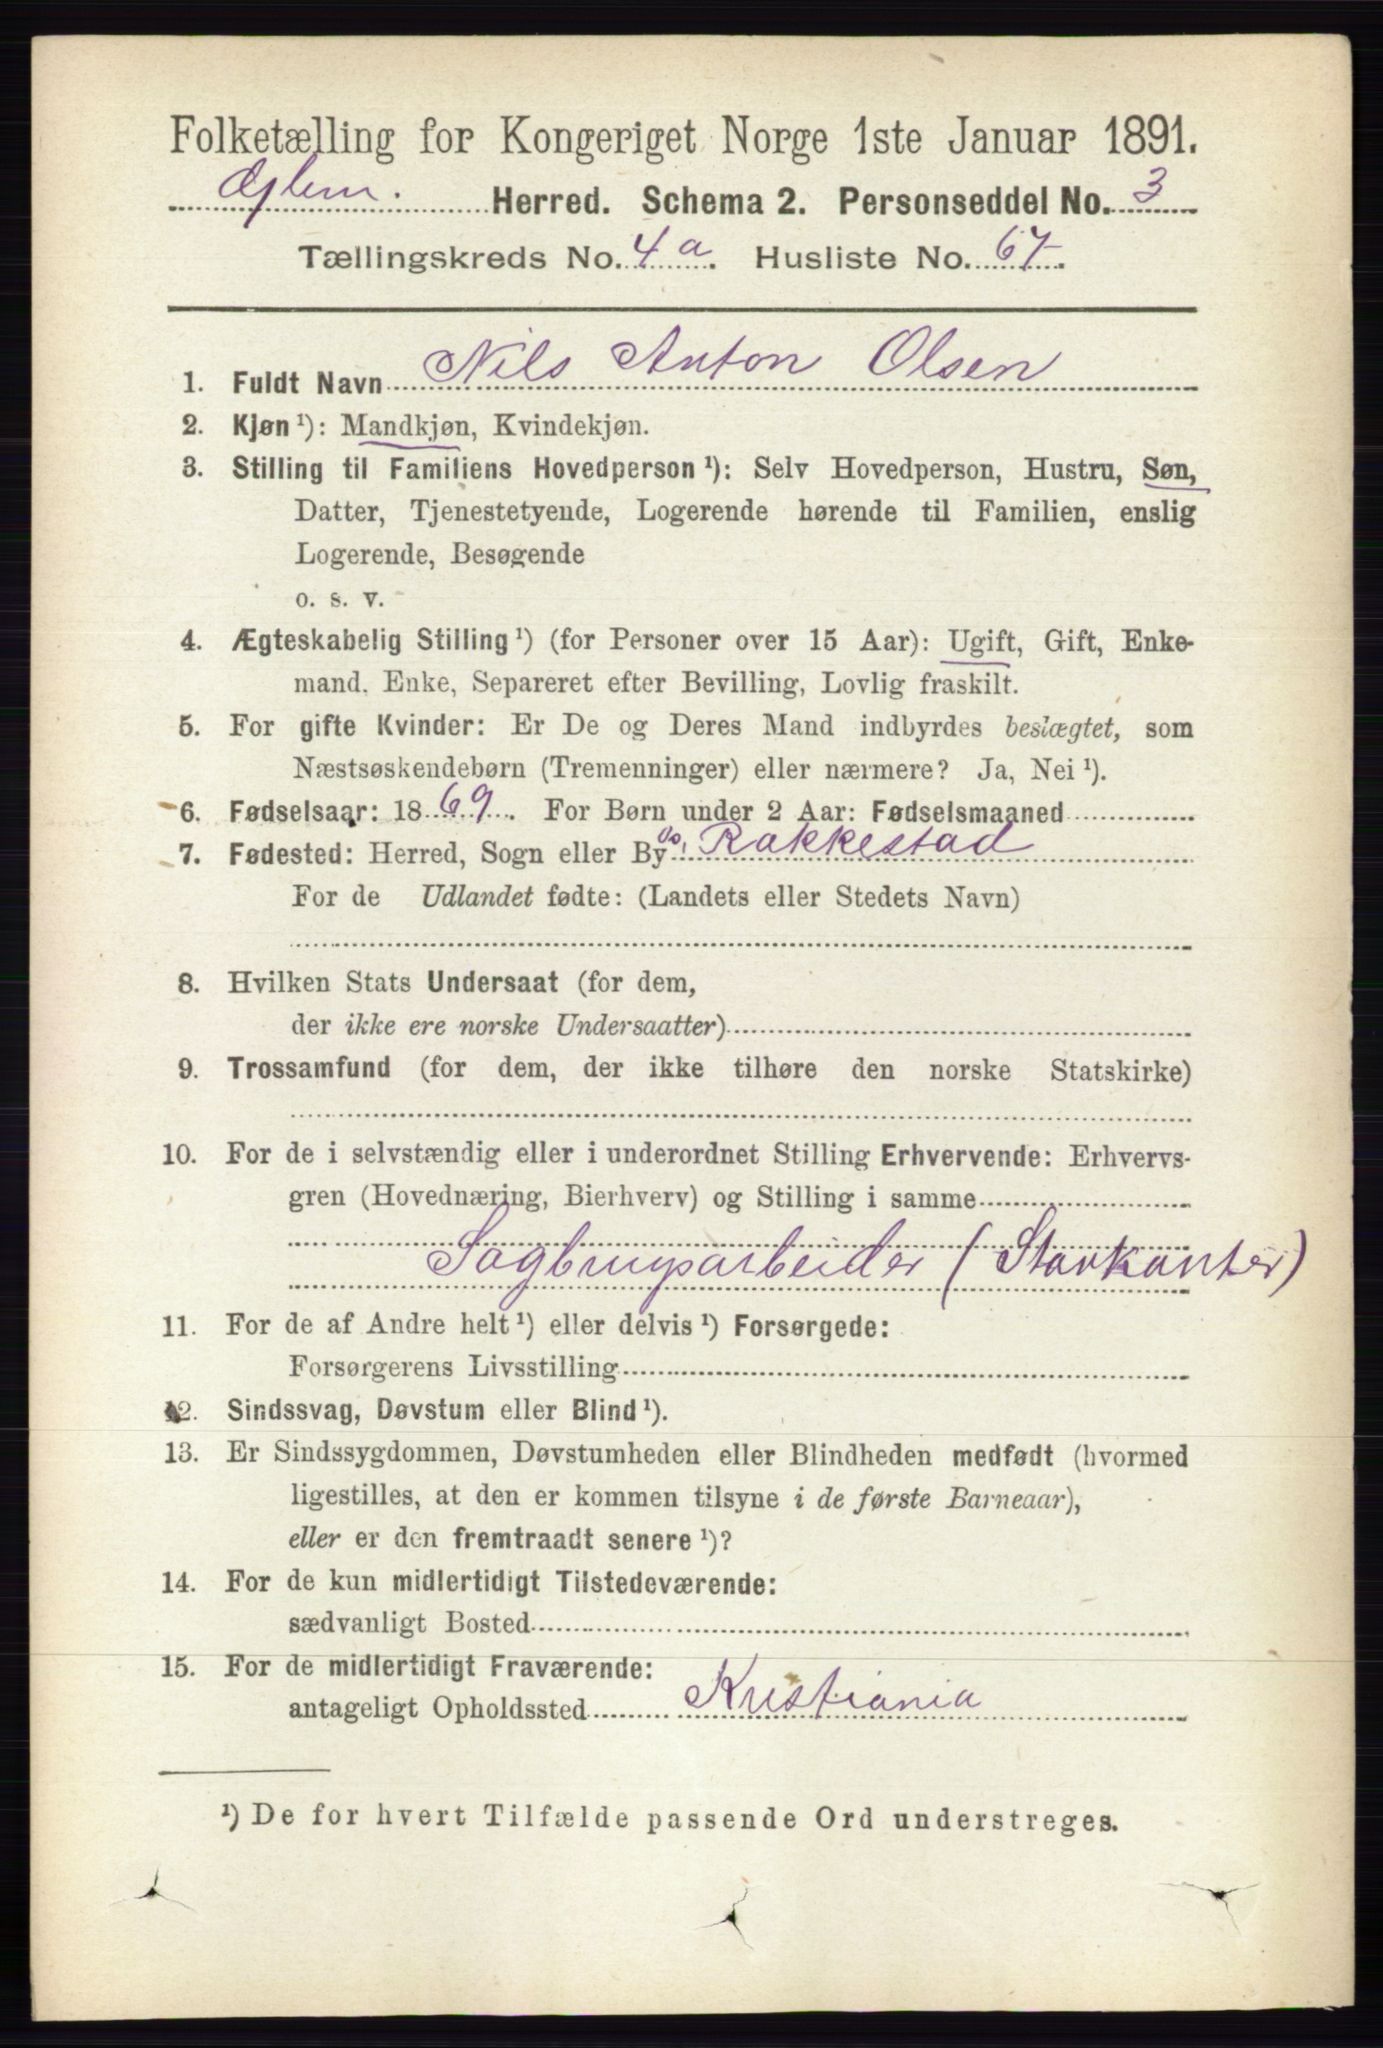 Folketælling for Kongeriget Norge 1ste Januar 1891.
Herred. Schema 2. Personseddel No. 3
Tællingskreds No. 4a. Husliste No. 67.
1. Fuldt Navn Nils Anton Olsen
2. Kjøn ¹): Mandkjøn, Kvindekjøn.
3. Stilling til Familiens Hovedperson ¹): Selv Hovedperson, Hustru, Søn,
Datter, Tjenestetyende, Logerende hørende til Familien, enslig
Logerende, Besøgende
o. s. v.
4. Ægteskabelig Stilling ¹) (for Personer over 15 Aar): Ugift, Gift, Enke-
mand, Enke, Separeret efter Bevilling, Lovlig fraskilt.
5. For gifte Kvinder: Er De og Deres Mand indbyrdes beslægtet, som
Næstsøskendebørn (Tremenninger) eller nærmere? Ja, Nei ¹).
6. Fødselsaar: 1869. For Børn under 2 Aar: Fødselsmaaned
7. Fødested: Herred, Sogn eller By Rakkestad
For de Udlandet fødte: (Landets eller Stedets Navn)
8. Hvilken Stats Undersaat (for dem,
der ikke ere norske Undersaatter)
9. Trossamfund (for dem, der ikke tilhøre den norske Statskirke)
10. For de i selvstændig eller i underordnet Stilling Erhvervende: Erhvervs-
gren (Hovednæring, Bierhverv) og Stilling i samme
Sagbrugsarbeider (Stavkanter)
11. For de af Andre helt ¹) eller delvis ¹) Forsørgede:
Forsørgerens Livsstilling
12. Sindssvag, Døvstum eller Blind ¹).
13. Er Sindssygdommen, Døvstumheden eller Blindheden medfødt (hvormed
ligestilles, at den er kommen tilsyne i de første Barneaar),
eller er den fremtraadt senere ¹)?
14. For de kun midlertidigt Tilstedeværende:
sædvanligt Bosted
15. For de midlertidigt Fraværende:
antageligt Opholdssted Kristiania
¹) De for hvert Tilfælde passende Ord understreges.